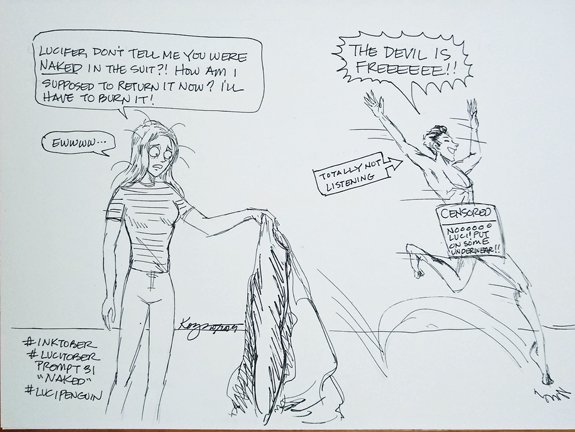 LUCIFER, DON'T TELL ME YOU WERE
NAKED IN THE SUIT?! HOW AM I
SUPPOSED TO RETURN IT NOW? I'LL
HAVE TO BURN IT!
EWWWW...
THE DEVIL IS
FREEEEEE!!
TOTALLY NOT
LISTENING
CENSORED
NOOOOOO
LUCI! PUT
ON SOME
UNDERWEAR!!
#INKTOBER
#LUCITOBER
PROMPT 31
"NAKED"
#LUCIPENGUIN